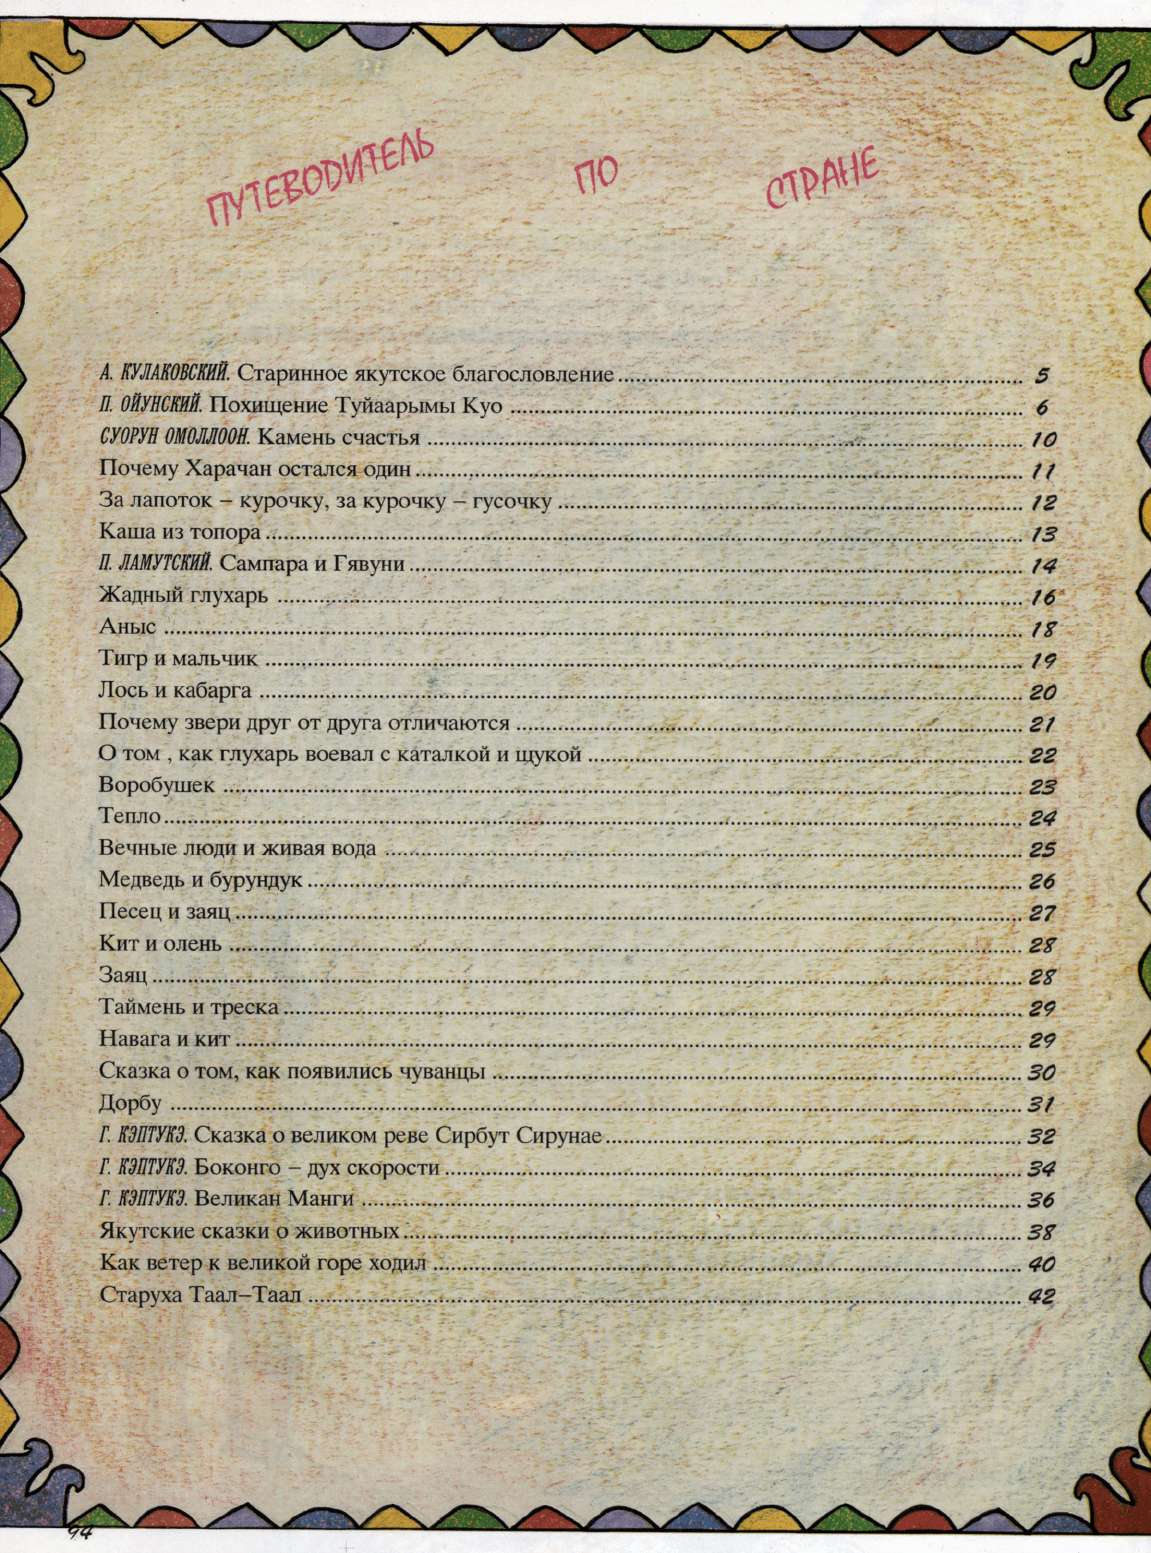 ПУТЕВОДИТЕЛЬ ПО СТРАНЕ
А. КУЛАКОВСКИЙ. Старинное якутское благословление........ 5
П. ОЙУНСКИЙ. Похищение Туйаарымы Куо ........ 6
СУОРУН ОМОЛЛООН. Камень счастья ........ 10
Почему Харачан остался один........ 11
За лапоток – курочку, за курочку – гусочку ........ 12
Каша из топора........ 13
П. ЛАМУТСКИЙ. Сампара и Гявуни........ 14
Жадный глухарь ........ 16
Аныс ........ 18
Тигр и мальчик ........ 19
Лось и кабарга ........ 20
Почему звери друг от друга отличаются ........ 21
О том , как глухарь воевал с каталкой и щукой ........ 22
Воробушек ........ 23
Тепло........ 24
Вечные люди и живая вода ........ 25
Медведь и бурундук........ 26
Песец и заяц........ 27
Кит и олень ........ 28
Заяц........ 28
Таймень и треска........ 29
Навага и кит........ 29
Сказка о том, как появились чуванцы ........ 30
Дорбу ........ 31
Г. КЭПТУКЭ. Сказка о великом реве Сирбут Сирунае........ 32
Г. КЭПТУКЭ. Боконго – дух скорости........ 34
Г. КЭПТУКЭ. Великан Манги ........ 36
Якутские сказки о животных........ 38
Как ветер к великой горе ходил ........ 40
Старуха Таал–Таал ........ 42
94